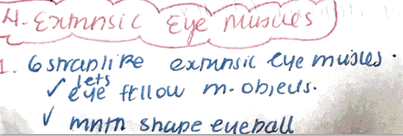 4. Extrinsic Eye Muscles
1. 6 straplike extrinsic eye muscles.
✓ lets eye follow m. objects.
✓ mntn shape eyeball